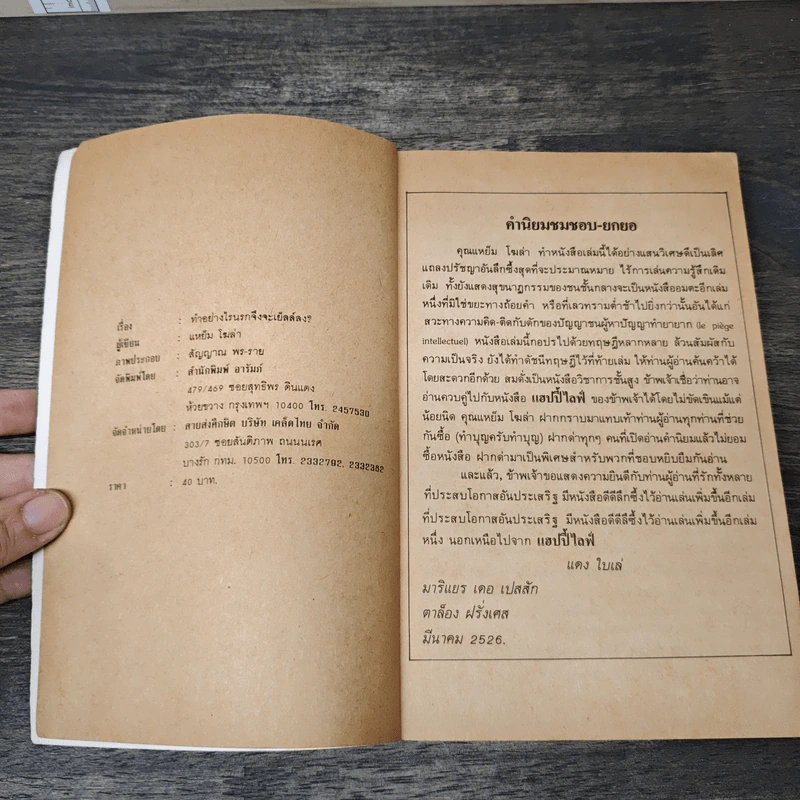 เรื่อง : ทำอย่างไรนรกจึงจะเย็ลส์ลง?
ผู้เขียน : แหย็ม โฆล่า
ภาพประกอบ : สัญญาณ พร-ราย
จัดพิมพ์โดย : สำนักพิมพ์ อารัมภ์
479/469 ซอยสุทธิพร ดินแดง
ห้วยขวาง กรุงเทพฯ 10400 โทร. 2457530
จัดจำหน่ายโดย : สายส่งศึกษิต บริษัท เคล็ดไทย จำกัด
303/7 ซอยสันติภาพ ถนนนเรศ
บางรัก กทม. 10500 โทร. 2332702. 2332382
ราคา : 40 บาท.
คำนิยมชมชอบ-ยกยอ
คุณแหย็ม โฆล่า ทำหนังสือเล่มนี้ได้อย่างแสนวิเศษดีเป็นเลิศ
แถลงปรัชญาอันลึกซึ้งสุดที่จะประมาณหมาย ไร้การเล่นความรู้สึกเดิม
เดิม ทั้งยังแสดงสุขนาฏกรรมของชนชั้นกลางจะเป็นหนังสืออมตะอีกเล่ม
หนึ่งที่มิใช่ขยะทางถ้อยคำ หรือที่เลวทรามต่ำช้าไปยิ่งกว่านั้นอันได้แก่
สวะทางความคิด-ติดกับดักของปัญญาชนผู้หาปัญญาทำยายาก (le piège
intellectuel) หนังสือเล่มนี้กอปรไปด้วยทฤษฎีหลากหลาย ล้วนสัมผัสกับ
ความเป็นจริง ยังได้ทำดัชนีทฤษฎีไว้ที่ท้ายเล่ม ให้ท่านผู้อ่านค้นคว้าได้
โดยสะดวกอีกด้วย สมดั่งเป็นหนังสือวิชาการชั้นสูง ข้าพเจ้าเชื่อว่าท่านอาจ
อ่านควบคู่ไปกับหนังสือ แฮปปี้ไลฟ์ ของข้าพเจ้าได้โดยไม่ขัดเขินแม้แต่
น้อยนิด คุณแหย็ม โฆล่า ฝากกราบมาแทบเท้าท่านผู้อ่านทุกท่านที่ช่วย
กันซื้อ (ทำบุญครับทำบุญ) ฝากด่าทุกๆ คนที่เปิดอ่านคำนิยมแล้วไม่ยอม
ซื้อหนังสือ ฝากด่ามาเป็นพิเศษสำหรับพวกที่ชอบหยิบยืมกันอ่าน
และแล้ว, ข้าพเจ้าขอแสดงความยินดีกับท่านผู้อ่านที่รักทั้งหลาย
ที่ประสบโอกาสอันประเสริฐ มีหนังสือดีดีลึกซึ้งไว้อ่านเล่นเพิ่มขึ้นอีกเล่ม
ที่ประสบโอกาสอันประเสริฐ มีหนังสือดีดีลึซึ้งไว้อ่านเล่นเพิ่มขึ้นอีกเล่ม
หนึ่ง นอกเหนือไปจาก แฮปปี้ไลฟ์
แดง ใบเล่
มาริแยร เดอ เปสสัก
ตาล็อง ฝรั่งเศส
มีนาคม 2526.